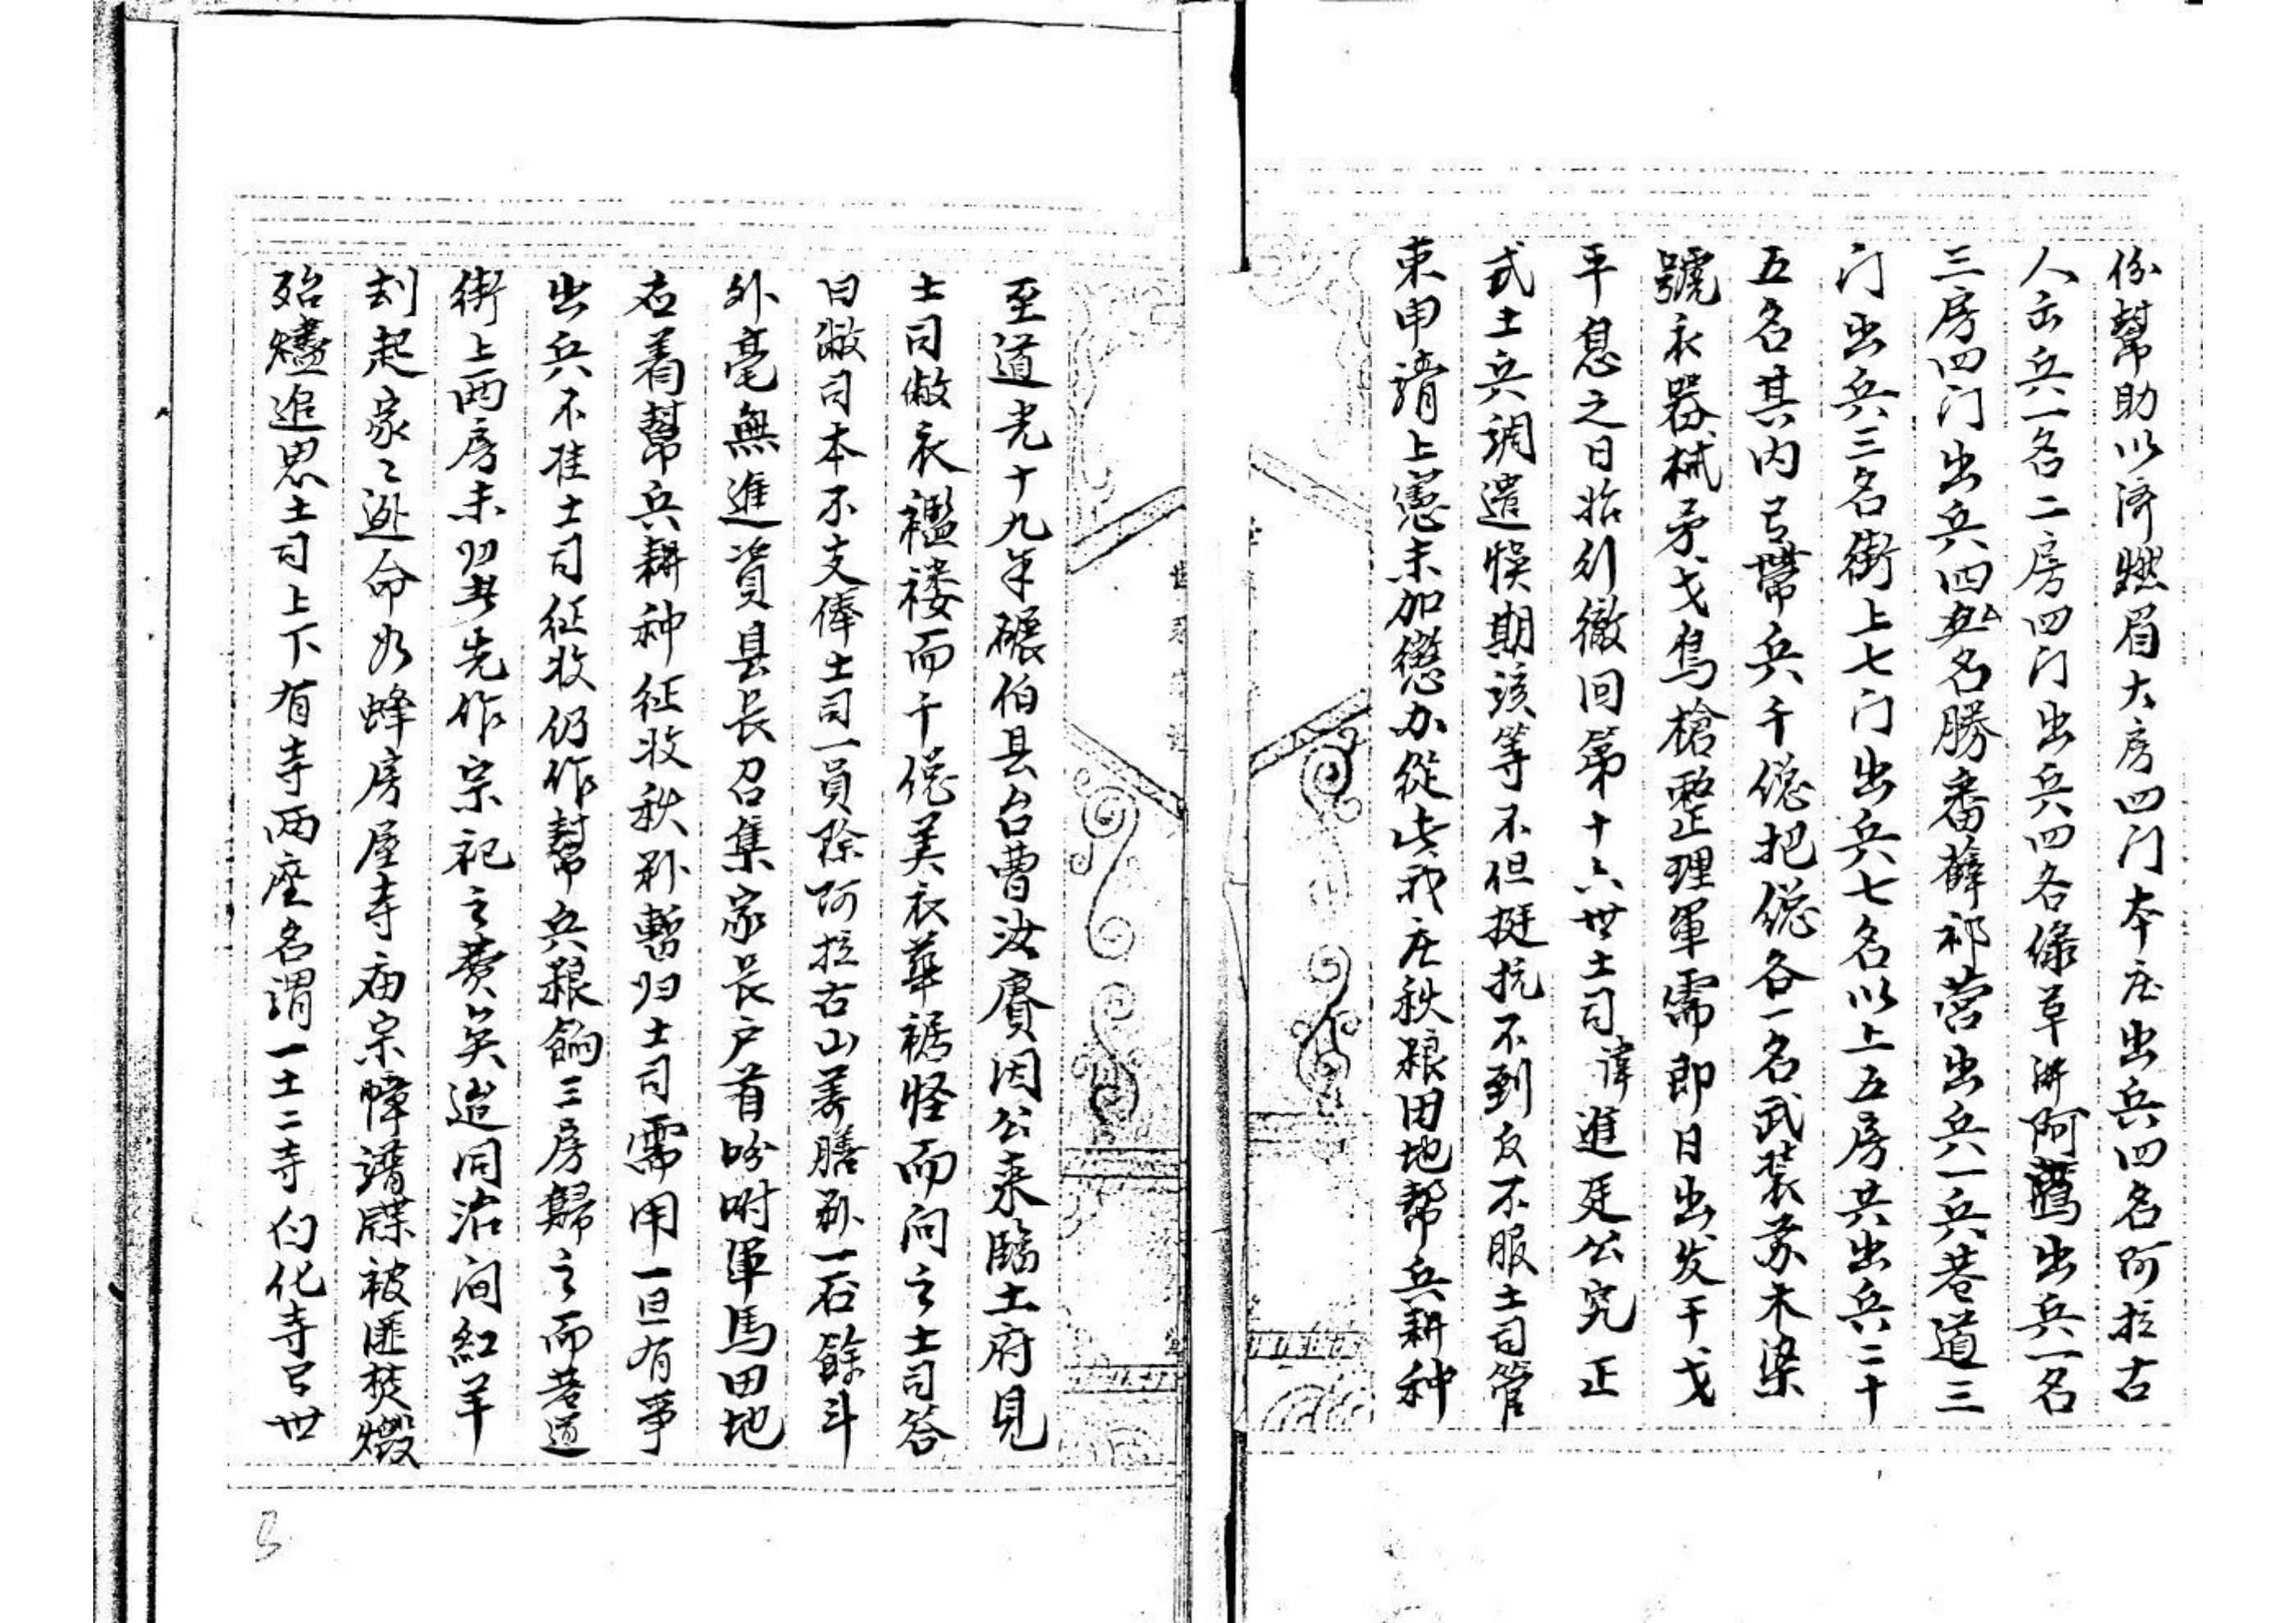 份幫助以济燃眉大房四门本庄出兵四名阿拉古
人出兵一名二房四门出兵四名綠草溝阿鸞出兵一名
三房四门出兵四五名勝番薛祁营出兵一兵巷道三
门出兵三名街上七门出兵七名以上五房共出兵二十
五名其内弓带兵千總把總各一名武装
號衣器械矛戈鳥槍整理軍需即日出发干戈
平息之日始行徹回第十六世土司諱進廷公完正
式土兵調遣悞期該等不但挺抗不到反不服土司管
束申請上憲未加懲办從此我庄秋粮田地幫兵耕种
世系
至道光十九年碾伯县台曹汝賡因公来臨土府見
土司敝衣襤褸而千總美衣華裾怪而问之土司答
曰敝司本不支俸土司一員除阿拉古山养膳粮一石餘斗
外毫無進資县長召集家長户首吩咐軍馬田地
右着幫兵耕种征收秋粮暫归土司需用一旦有事
出兵不准土司征收仍作幫兵粮餉三房歸之而巷道
街上两房未归其先作宗祀之费矣迨同治间紅羊
刦起家々逃命故蜂房屋寺庙宗幛譜牒被匪焚燬
殆燼追思土司上下有寺两座名謂一土二寺白化寺与世
3